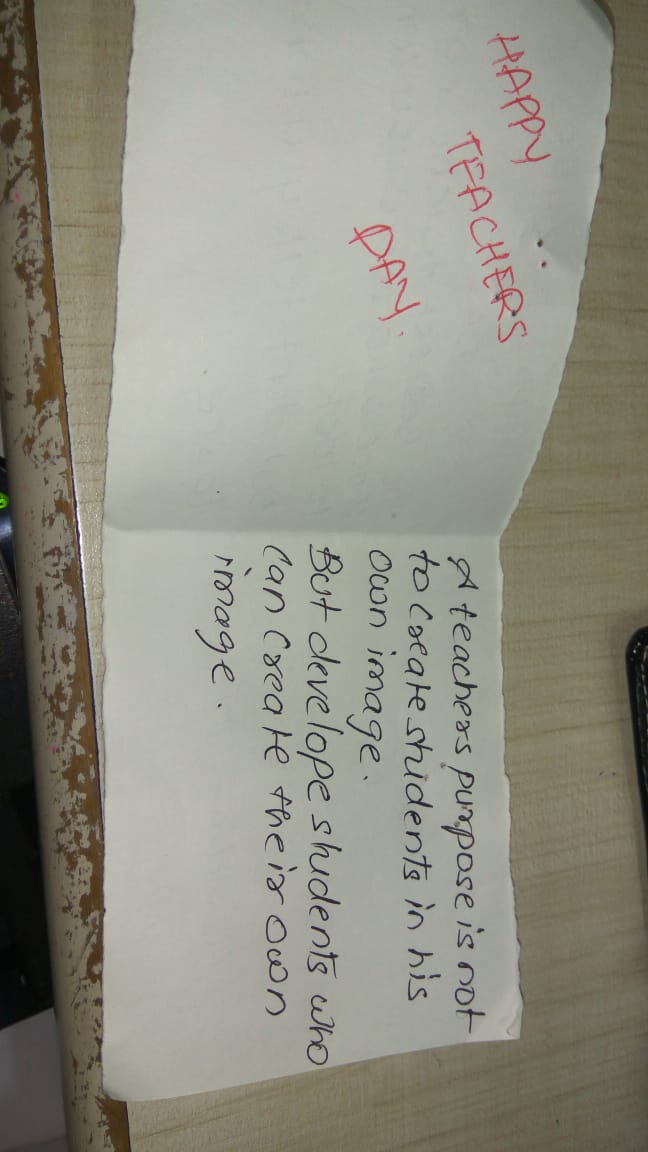 HAPPY
TEACHERS
DAY.
A teachers purpose is not
to create students in his
own image.
But develope students who
can create their own
image.